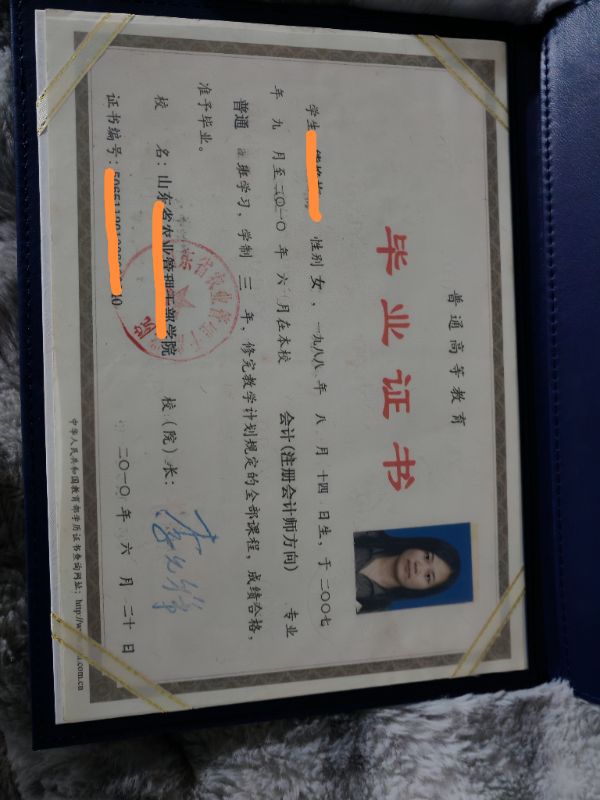 普通高等教育
毕业证书
学生 性别 女，一九八八年 八 月 十四 日生，于 二〇〇七
年 九 月至 二〇一〇 年 六 月在本校 会计(注册会计师方向) 专业
普通 班学习，学制 三 年，修完教学计划规定的全部课程，成绩合格，
准予毕业。
校 名：山东省农业管理干部学院 校（院）长：
证书编号： 二〇一〇 年 六 月 二十 日
中华人民共和国教育部学历证书查询网址：http://w .com.cn